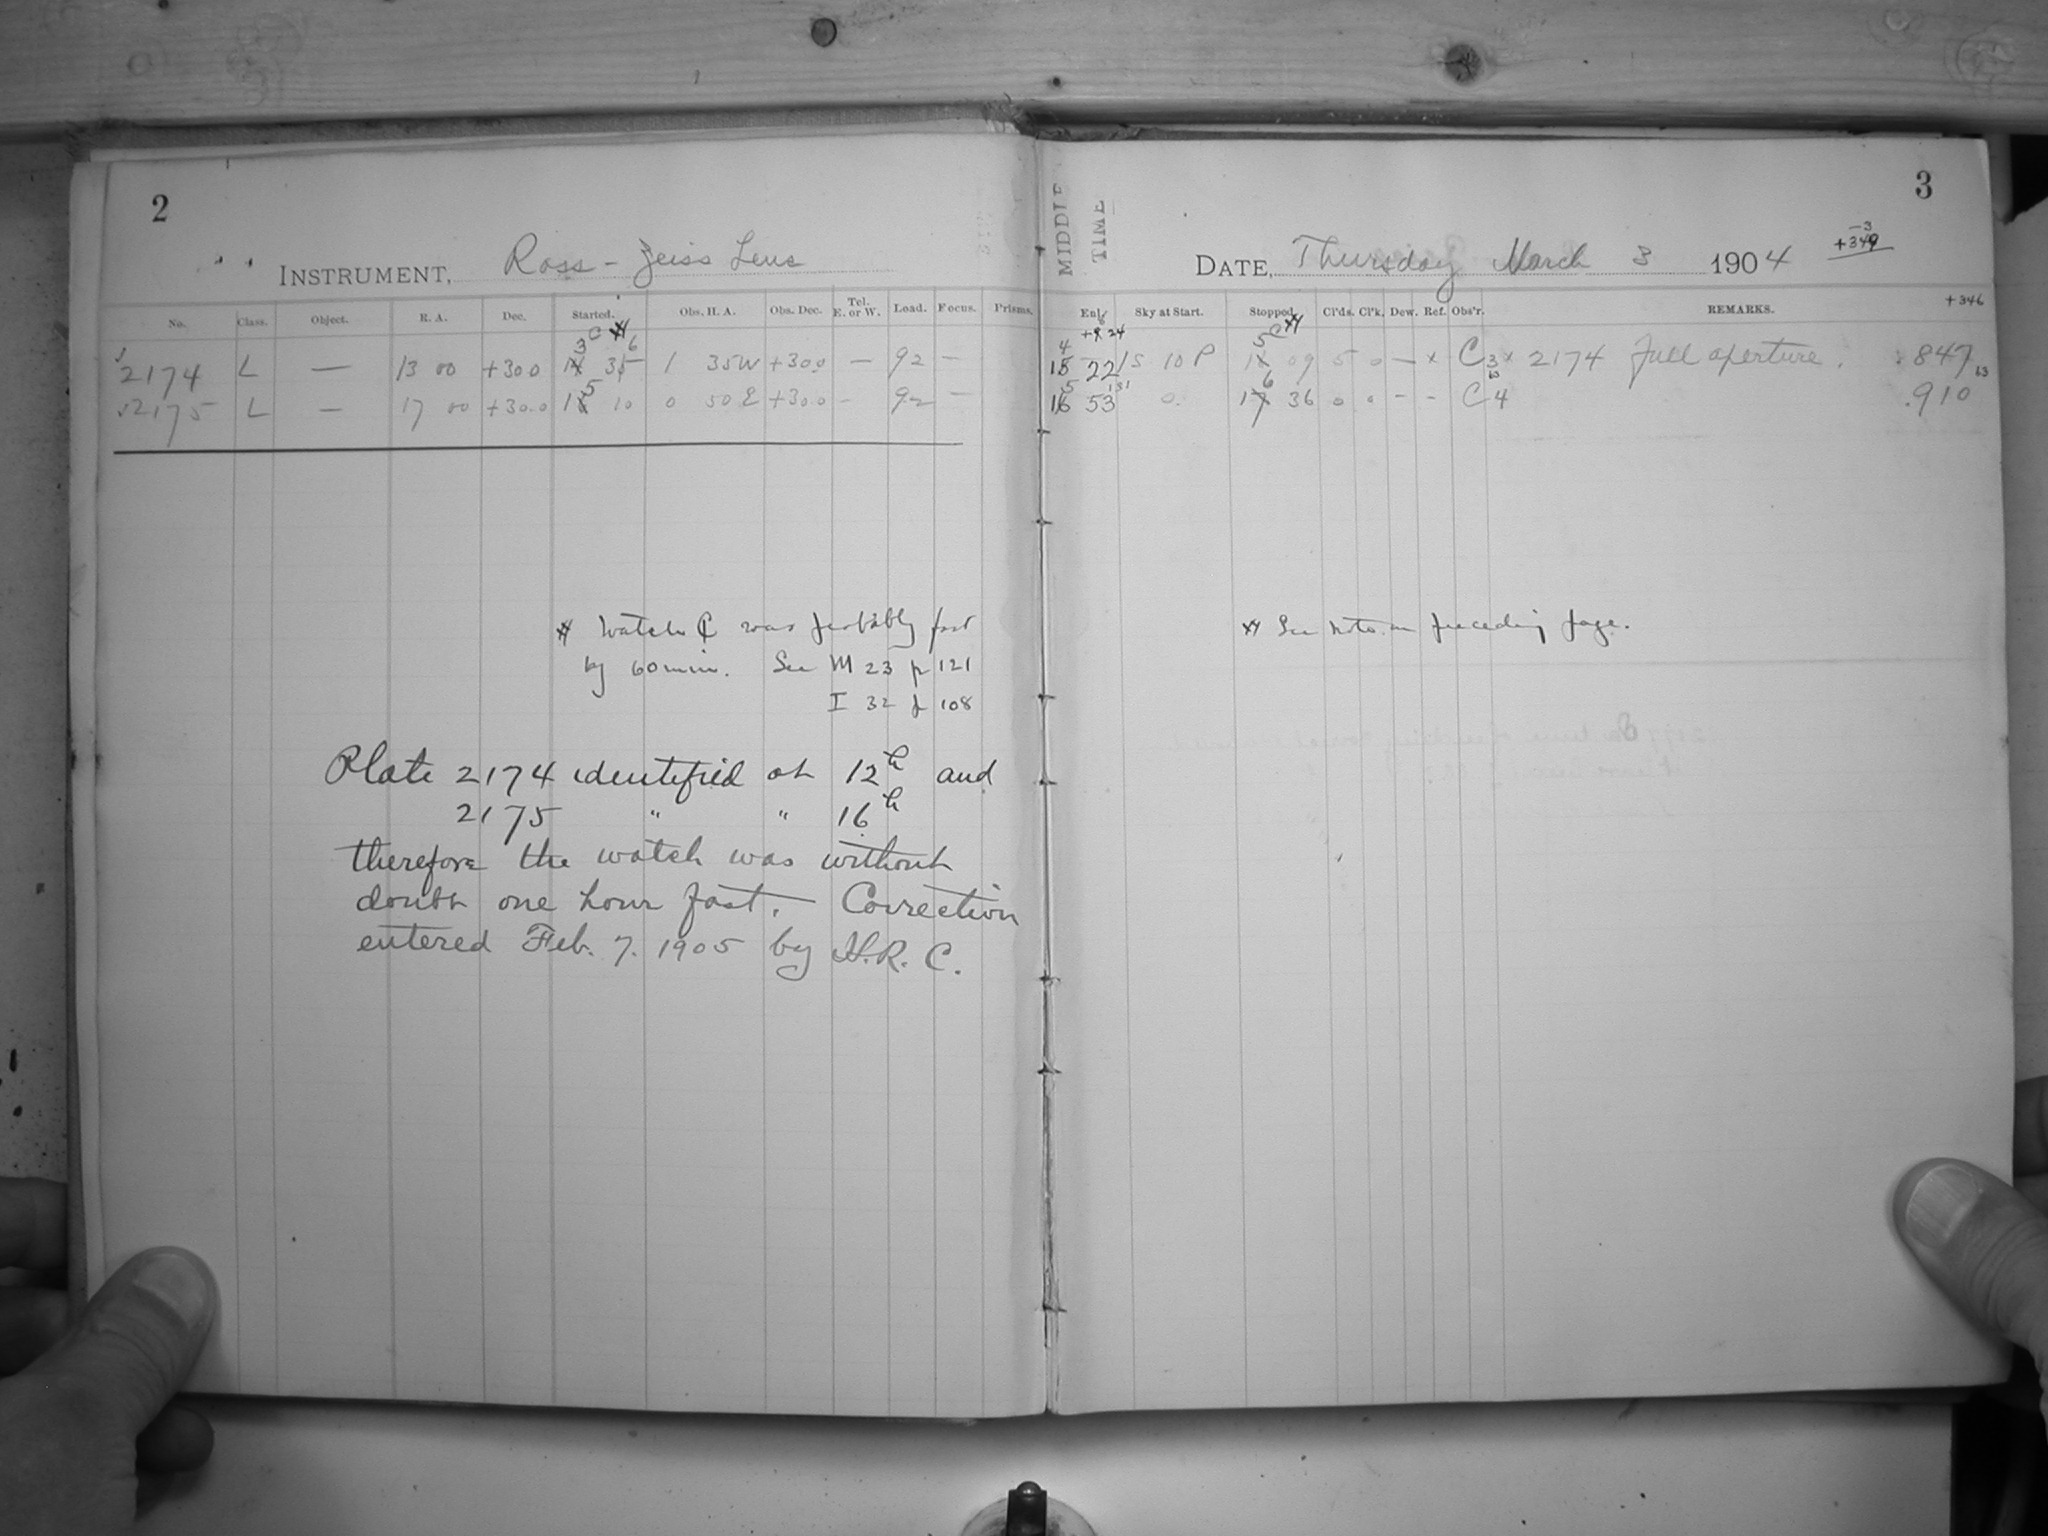 2
INSTRUMENT, Ross-Zeiss Lens
No. Class. Object. R. A. Dec. Started. Obs. H. A. Obs. Dec. Tel. E. or W. Load. Focus. Prisms.
2174 L — 13 00 +30 0 1 35W +30 0 — 92 —
2175 L — 17 00 +30.0 10 0 50 E +30.0 - 92 —
# Watch C was probably fast
by 60 min. See M 23 p 121
I 32 p 108
Plate 2174 identified at 12h and
2175 " " 16h
therefore the watch was without
doubt one hour fast. Correction
entered Feb. 7. 1905 by H.R.C.
3
MIDDLE TIME
DATE, Thursday March 3 1904
-3
+349
+346
Sky at Start. Stopped. Cl'ds. Cl'k. Dew. Ref. Obs'r. REMARKS.
22 15 10 P 09 5 0 — x C3 x 2174 full aperture. .847
53 0. 36 0 0 - - C4 .910
See note on preceding page.